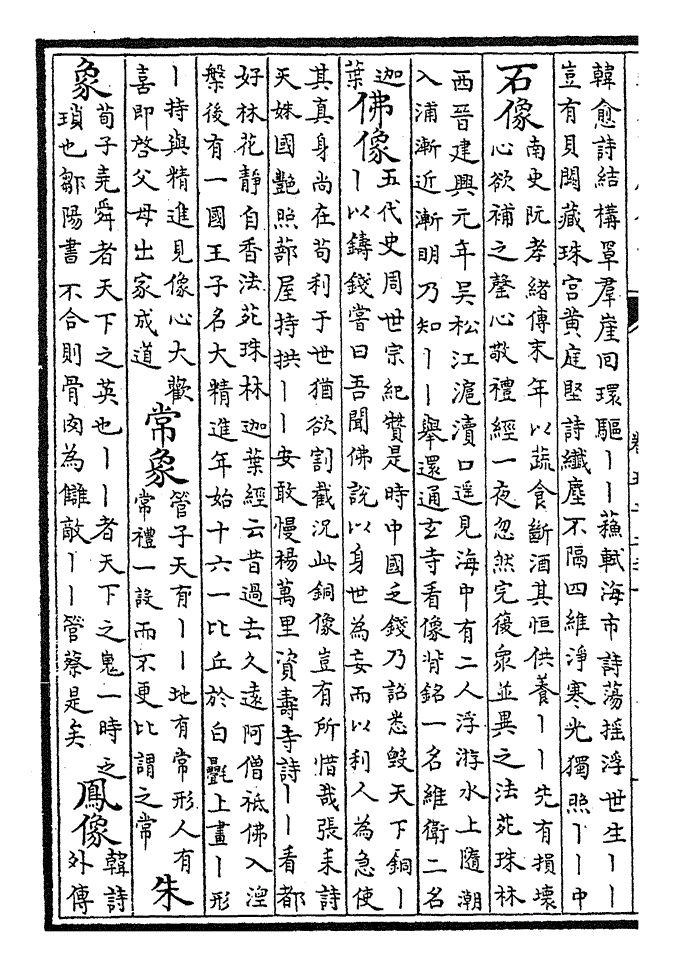 韓愈詩結構罩羣崖回環驅丨丨蘓軾海市詩蕩揺浮世生丨丨
豈有貝闕藏珠宮黄庭堅詩纎塵不隔四維淨寒光獨照丨丨中
石像
南史阮孝緒傳末年以蔬食斷酒其恒供養丨丨先有損壞
心欲補之罄心敬禮經一夜忽然完復衆並異之法苑珠林
西晉建興元年吳松江滬瀆口遥見海中有二人浮游水上隨潮
入浦漸近漸明乃知丨丨舉還通玄寺看像背銘一名維衛二名
迦
葉
佛像
五代史周世宗紀贊是時中國乏錢乃詔悉毁天下銅丨
丨以鑄錢嘗曰吾聞佛說以身世為妄而以利人為急使
其真身尚在苟利于世猶欲割截況此銅像豈有所惜哉張耒詩
天姝國艷照蔀屋持拱丨丨安敢慢楊萬里資壽寺詩丨丨看都
好林花靜自香法苑珠林迦葉經云昔過去久遠阿僧祗佛入涅
槃後有一國王子名大精進年始十六一比丘於白㲲上畫丨形
丨持與精進見像心大歡
喜即啓父母出家成道
常象
管子天有丨丨地有常形人有
常禮一設而不更比謂之常
朱
象
荀子堯舜者天下之英也丨丨者天下之嵬一時之
瑣也鄒陽書不合則骨肉為讎敵丨丨管蔡是矣
鳳像
韓詩
外傳